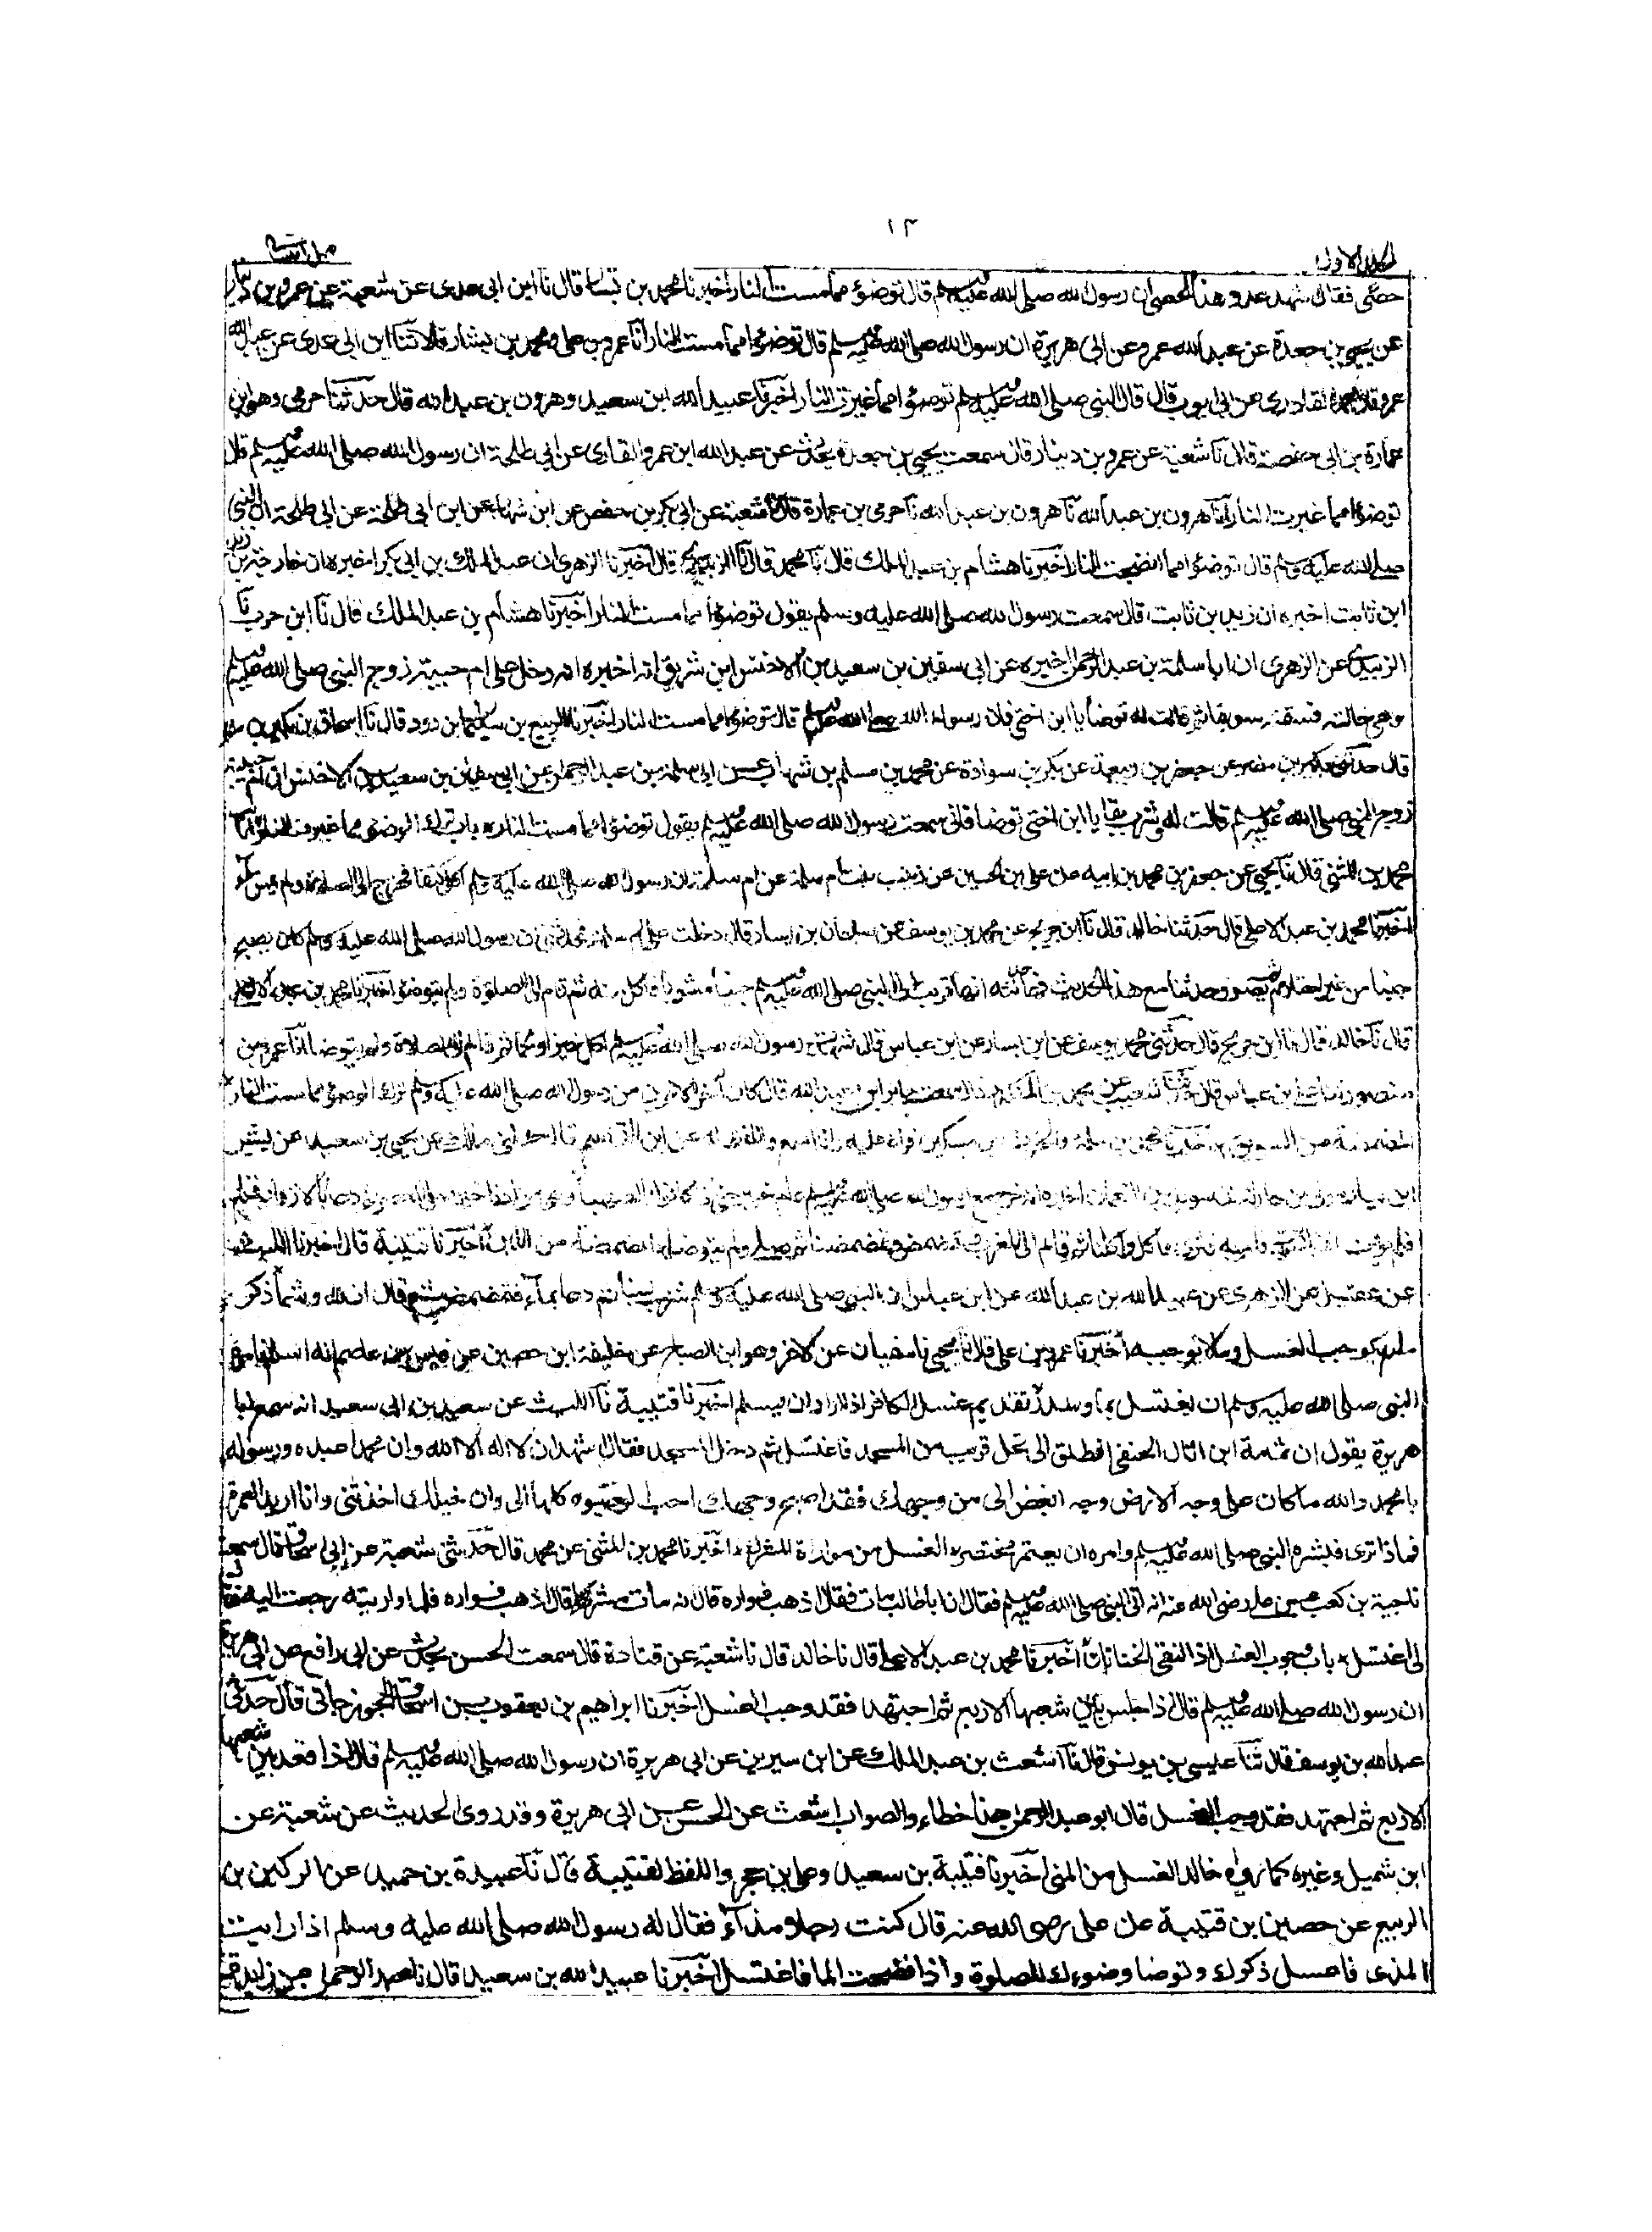 ١٣
المجلد الاول
حصى فقال اشهد عدد هذا الحصى ان رسول الله صلى الله عليه وسلم قال توضؤا مما مست النار اخبرنا محمد بن بشار قال نا ابن ابى عدى عن شعبة عن عمرو بن دينار
عن يحيى بن جعدة عن عبد الله عمرو عن ابى هريرة ان رسول الله صلى الله عليه وسلم قال توضؤا مما مست النار انا عمرو بن على ومحمد بن بشار قالا ثنا ابن ابى عدى عن عبد الله
عمرو القادرى عن ابى ايوب قال قال النبى صلى الله عليه وسلم توضؤا مما غيرت النار اخبرنا عبيد الله ابن سعيد وهرون بن عبد الله قال حدثنا حرمى وهو ابن
عمارة بن ابى حفصة قال نا شعبة عن عمرو بن دينار قال سمعت يحيى بن جعدة يحدث عن عبد الله ابن عمرو القارى عن ابى طلحة ان رسول الله صلى الله عليه وسلم قال
توضؤا مما غيرت النار انا هرون بن عبد الله نا هرون بن عبد الله نا حرمى بن عمارة قال نا شعبة عن ابى بكر بن حفص عن ابن شهاب عن ابن ابى طلحة عن ابى طلحة ان النبى
صلى الله عليه وسلم قال توضؤا مما انضجت النار اخبرنا هشام بن عبد الملك قال نا محمد قال نا الزبيدى قال اخبرنا الزهرى ان عبد الملك بن ابى بكر اخبره ان خارجة بن زيد
ابن ثابت اخبره ان زيد بن ثابت قال سمعت رسول الله صلى الله عليه وسلم يقول توضؤا مما مست النار اخبرنا هشام بن عبد الملك قال نا ابن حرب نا
الزبيدى عن الزهرى ان ابا سلمة بن عبد الرحمن اخبره عن ابى سفين بن سعيد بن الاخنس ابن شريق انه اخبره انه دخل على ام حبيبة زوج النبى صلى الله عليه وسلم
وهى خالته فسقته سويقا ثم قالت له توضأ يا ابن اختى فان رسول الله صلى الله عليه وسلم قال توضؤا مما مست النار اخبرنا الربيع بن سليمان ابن داود قال نا اسحاق بن بكر بن مضر
قال حدثنى بكر بن مضر عن جعفر بن ربيعة عن بكر بن سوادة عن محمد بن مسلم بن شهاب عن ابى سلمة بن عبد الرحمن عن ابى سفيان بن سعيد بن الاخنس ان ام حبيبة
زوج النبى صلى الله عليه وسلم قالت له وشرب سويقا يا ابن اختى توضأ فانى سمعت رسول الله صلى الله عليه وسلم يقول توضؤا مما مست النار باب ترك الوضوء مما غيرت النار انا
محمد بن المثنى قال نا يحيى عن جعفر بن محمد بن ابيه عن على ابن الحسين عن زينب بنت ام سلمة عن ام سلمة ان رسول الله صلى الله عليه وسلم اكل كتفا فخرج الى الصلوة ولم يمس ماء
اخبرنا محمد بن عبد الاعلى قال حدثنا خالد قال نا ابن جريج عن محمد بن يوسف عن سليمان بن يسار قال دخلت على ام سلمة فحدثتنى ان رسول الله صلى الله عليه وسلم كان يصبح
جنبا من غير احتلام ثم يصوم وحدثنا مع هذا الحديث انها حدثته انها قربت الى النبى صلى الله عليه وسلم جنبا مشويا فاكل منه ثم قام الى الصلوة ولم يتوضؤ اخبرنا محمد بن عبد الاعلى
قال نا خالد قال نا ابن جريج قال حدثنى محمد بن يوسف عن ابن يسار عن ابن عباس قال شهدت رسول الله صلى الله عليه وسلم اكل خبزا ولحما ثم قام الى الصلاة ولم يتوضأ انا عمرو بن
منصور نا على بن عياش قال ثنا شعيب عن محمد بن المنكدر قال سمعت جابر ابن عبد الله قال كان آخر الامرين من رسول الله صلى الله عليه وسلم ترك الوضوء مما مست النار
المضمضة من السويق اخبرنا محمد بن سلمة والحرث بن مسكين قراءة عليه وانا اسمع واللفظ له عن ابن القاسم قال حدثنى مالك عن يحيى بن سعيد عن بشير
فاكل واكلنا ثم قام الى المغرب فتمضمض وتمضمضنا ثم صلى ولم يتوضأ المضمضة من اللبن اخبرنا قتيبة قال اخبرنا الليث
عن عقيل عن الزهرى عن عبيد الله بن عبد الله عن ابن عباس ان النبى صلى الله عليه وسلم شرب لبنا ثم دعا بماء فتمضمض ثم قال ان له دسما ذكر
ما يوجب الغسل وما لا يوجبه اخبرنا عمرو بن على قال نا يحيى نا سفيان عن الاغر وهو ابن الصباح عن خليفة ابن حصين عن قيس بن عاصم انه اسلم فامره
النبى صلى الله عليه وسلم ان يغتسل بماء وسدر تقديم غسل الكافر اذا اراد ان يسلم اخبرنا قتيبة نا الليث عن سعيد بن ابى سعيد انه سمع ابا
هريرة يقول ان ثمامة ابن اثال الحنفى انطلق الى نخل قريب من المسجد فاغتسل ثم دخل المسجد فقال اشهد ان لا اله الا الله وان محمدا عبده ورسوله
يا محمد والله ما كان على وجه الارض وجه ابغض الى من وجهك فقد اصبح وجهك احب الوجوه كلها الى وان خيلك اخذتنى وانا اريد العمرة
فماذا ترى فبشره النبى صلى الله عليه وسلم وامره ان يعتمر مختصر الغسل من مواراة المشرك اخبرنا محمد بن المثنى عن محمد قال حدثنى شعبة عن ابى اسحاق قال سمعت
ناجية بن كعب عن على رضى الله عنه انه اتى النبى صلى الله عليه وسلم فقال ان ابا طالب مات فقال اذهب فواره قال انه مات مشركا قال اذهب فواره فلما واريته رجعت اليه فقال
لى اغتسل باب وجوب الغسل اذا التقى الختانان اخبرنا محمد بن عبد الاعلى قال نا خالد قال نا شعبة عن قتادة قال سمعت الحسن يحدث عن ابى رافع عن ابى هريرة
ان رسول الله صلى الله عليه وسلم قال اذا جلس بين شعبها الاربع ثم اجتهد فقد وجب الغسل اخبرنا ابراهيم بن يعقوب بن اسحاق الجوزجانى قال حدثنى
عبد الله بن يوسف قال ثنا عيسى بن يونس قال نا اشعث بن عبد الملك عن ابن سيرين عن ابى هريرة ان رسول الله صلى الله عليه وسلم قال اذا قعد بين شعبها
الاربع ثم اجتهد فقد وجب الغسل قال ابو عبد الرحمن هذا خطاء والصواب اشعث عن الحسن عن ابى هريرة وقد روى الحديث عن شعبة عن
ابن شميل وغيره كما رواه خالد الغسل من المنى اخبرنا قتيبة بن سعيد وعلى بن حجر واللفظ لقتيبة قال نا عبيدة بن حميد عن الركين بن
الربيع عن حصين بن قتيبة عن على رضى الله عنه قال كنت رجلا مذاء فقال له رسول الله صلى الله عليه وسلم اذا رايت
المذى فاغسل ذكرك وتوضا وضوءك للصلوة واذا فضحت الما فاغتسل اخبرنا عبيد الله بن سعيد قال نا عبد الرحمن عن زايدة